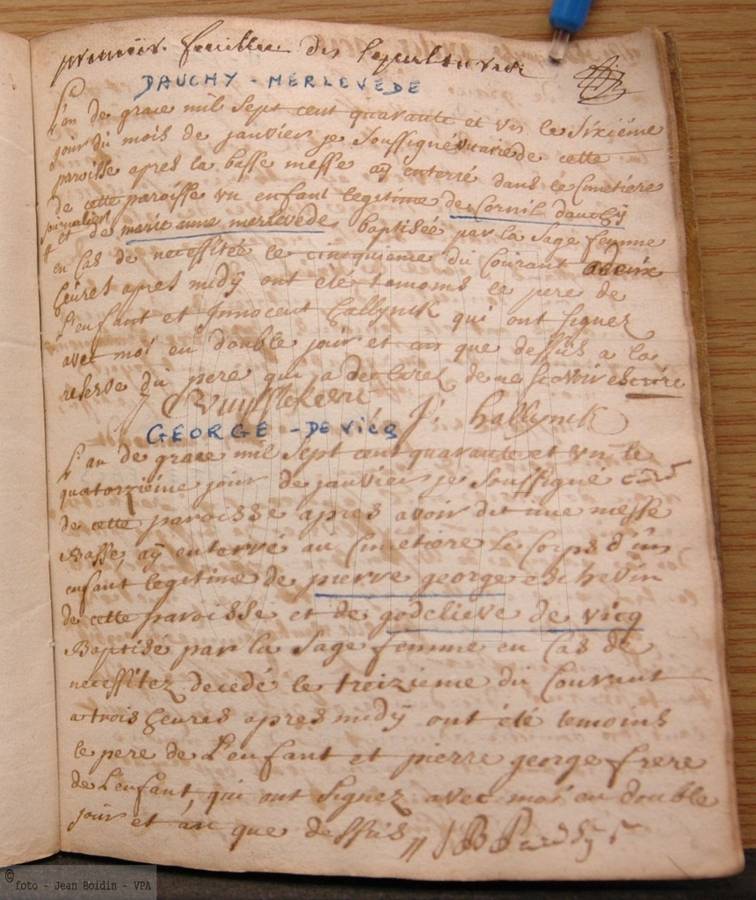 premiere feuille des sepultures
DAUCHY - MERLEVEDE
L'an de grace mil sept cent quarante et vn le sixiéme
jour du mois de janvier je soussigné curé de cette
paroisse apres la basse messe aÿ enterré dans le Cimetiere
de cette paroisse vn enfant legitime de Cornil dauchÿ
journalier
et de marie anne merlevede baptisée par la sage femme
en Cas de necessitée le cincquieme du Courant a deux
heures apres midÿ ont été temoins le pere de
L'enfant et Innocent hallynck qui ont signez
avec moi en double jour et an que dessus a la
reserve du pere qui a declarez de ne scavoir escrire
J: hallynck
GEORGE - DE VICQ
L'an de grace mil sept cent quarante et vn le
quatorziéme jour de janvier je soussigné curé
de cette paroisse apres avoir dit une messe
Basse, aÿ enterré au Cimetiere le Corps d'un
enfant legitime de pierre george eschevin
de cette paroisse et de godelieve de vicq
Baptisé par la sage femme en Cas de
necessitez decedé le treizieme du Courant
a trois heures apres midÿ ont été temoins
le pere de L'enfant et pierre george frere
de L'enfant, qui ont signez avec moi en double
jour et an que dessus
© foto - Jean Boidin - VPA